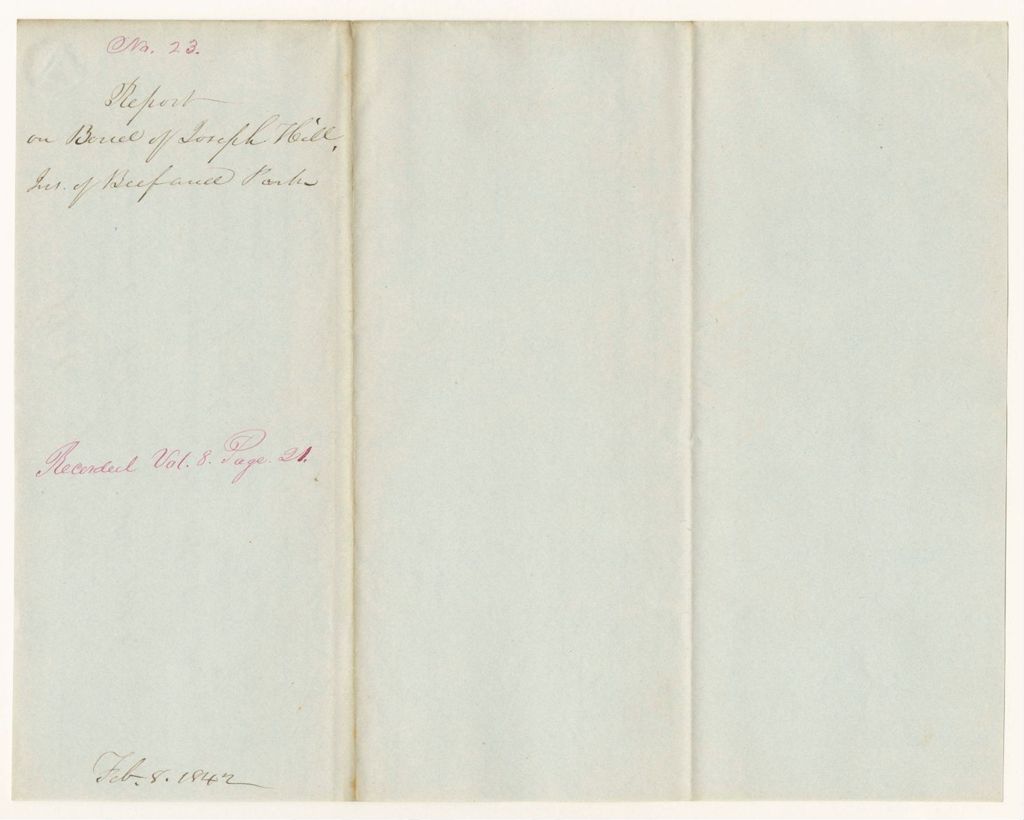 No. 23.
Report
on Bond of Joseph Hill,
Ins. of Beef and Pork
Recorded Vol. 8. Page. 21.
Feb. 8. 1842